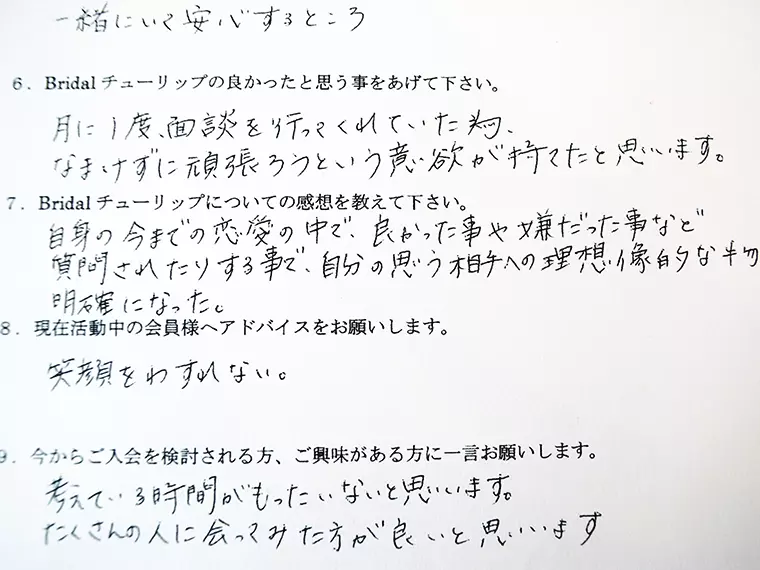 一緒にいて安心するところ
6．Bridalチューリップの良かったと思う事をあげて下さい。
月に1度、面談を行ってくれていた為、
なまけずに頑張ろうという意欲が持てたと思います。
7．Bridalチューリップについての感想を教えて下さい。
自身の今までの恋愛の中で、良かった事や嫌だった事など
質問されたりする事で、自分の思う相手への理想像的な物
明確になった。
8．現在活動中の会員様へアドバイスをお願いします。
笑顔をわすれない。
9．今からご入会を検討される方、ご興味がある方に一言お願いします。
考えている時間がもったいないと思います。
たくさんの人に会ってみた方が良いと思います